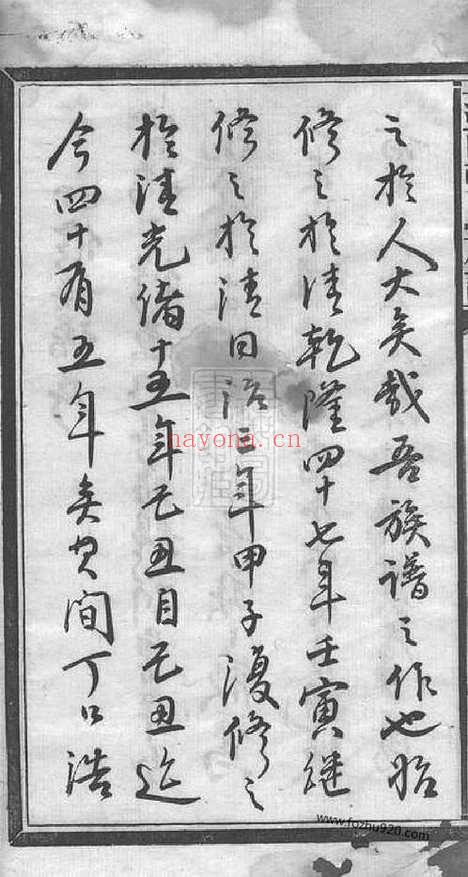 之於人大矣哉吾族譜之作也始
修之於清乾隆四十七年壬寅繼
修之於清同治三年甲子復修之
於清光緒十五年己丑自己丑迄
今四十有五年矣其間丁口浩
nayona.cn
www.fozhu920.com